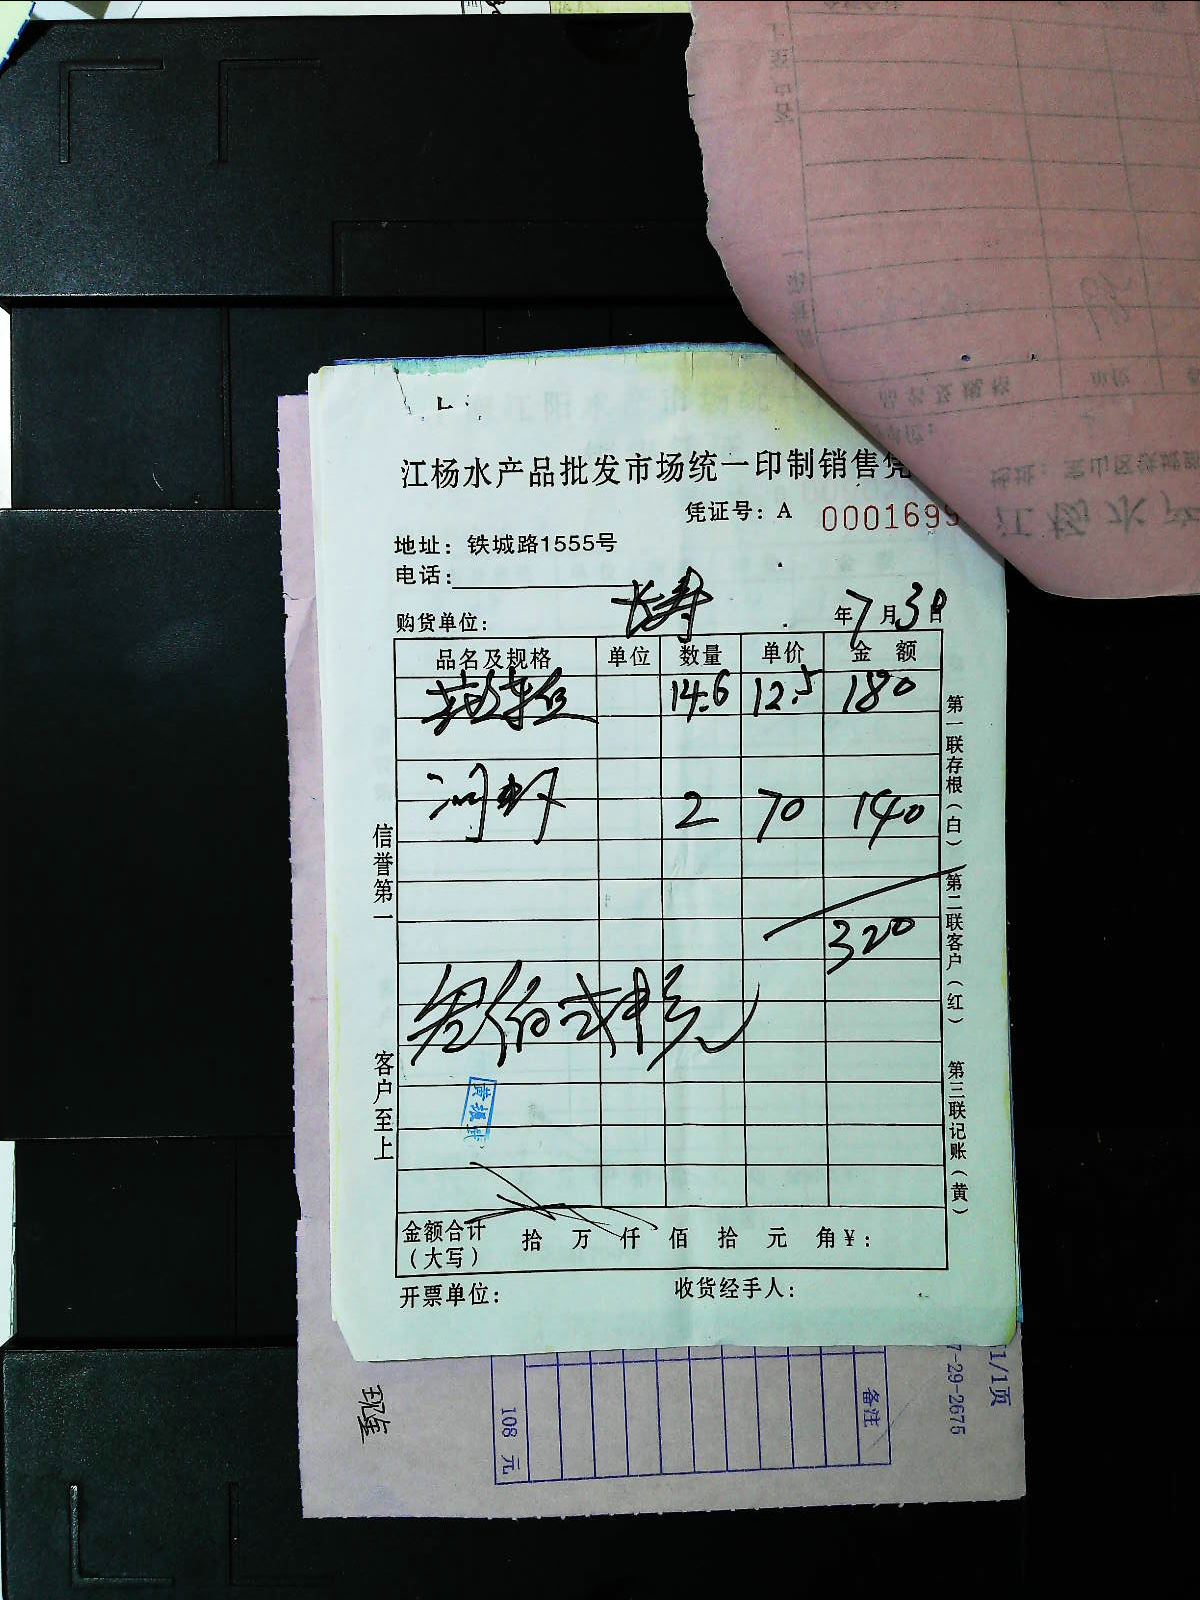 江杨水产品批发市场统一印制销售凭
凭证号：A 0001699
地址：铁城路1555号
电话：
购货单位： 长寿 年7月30日
品名及规格 单位 数量 单价 金额
14.6 12.5 180
河虾 2 70 140
320
叁佰贰拾元
金额合计（大写） 拾 万 仟 佰 拾 元 角 ¥：
开票单位： 收货经手人：
信誉第一 客户至上
第一联存根（白） 第二联客户（红） 第三联记账（黄）
现金
108 元
备注
7-29-2675
1/1页
品名及规格 单位
江杨水产